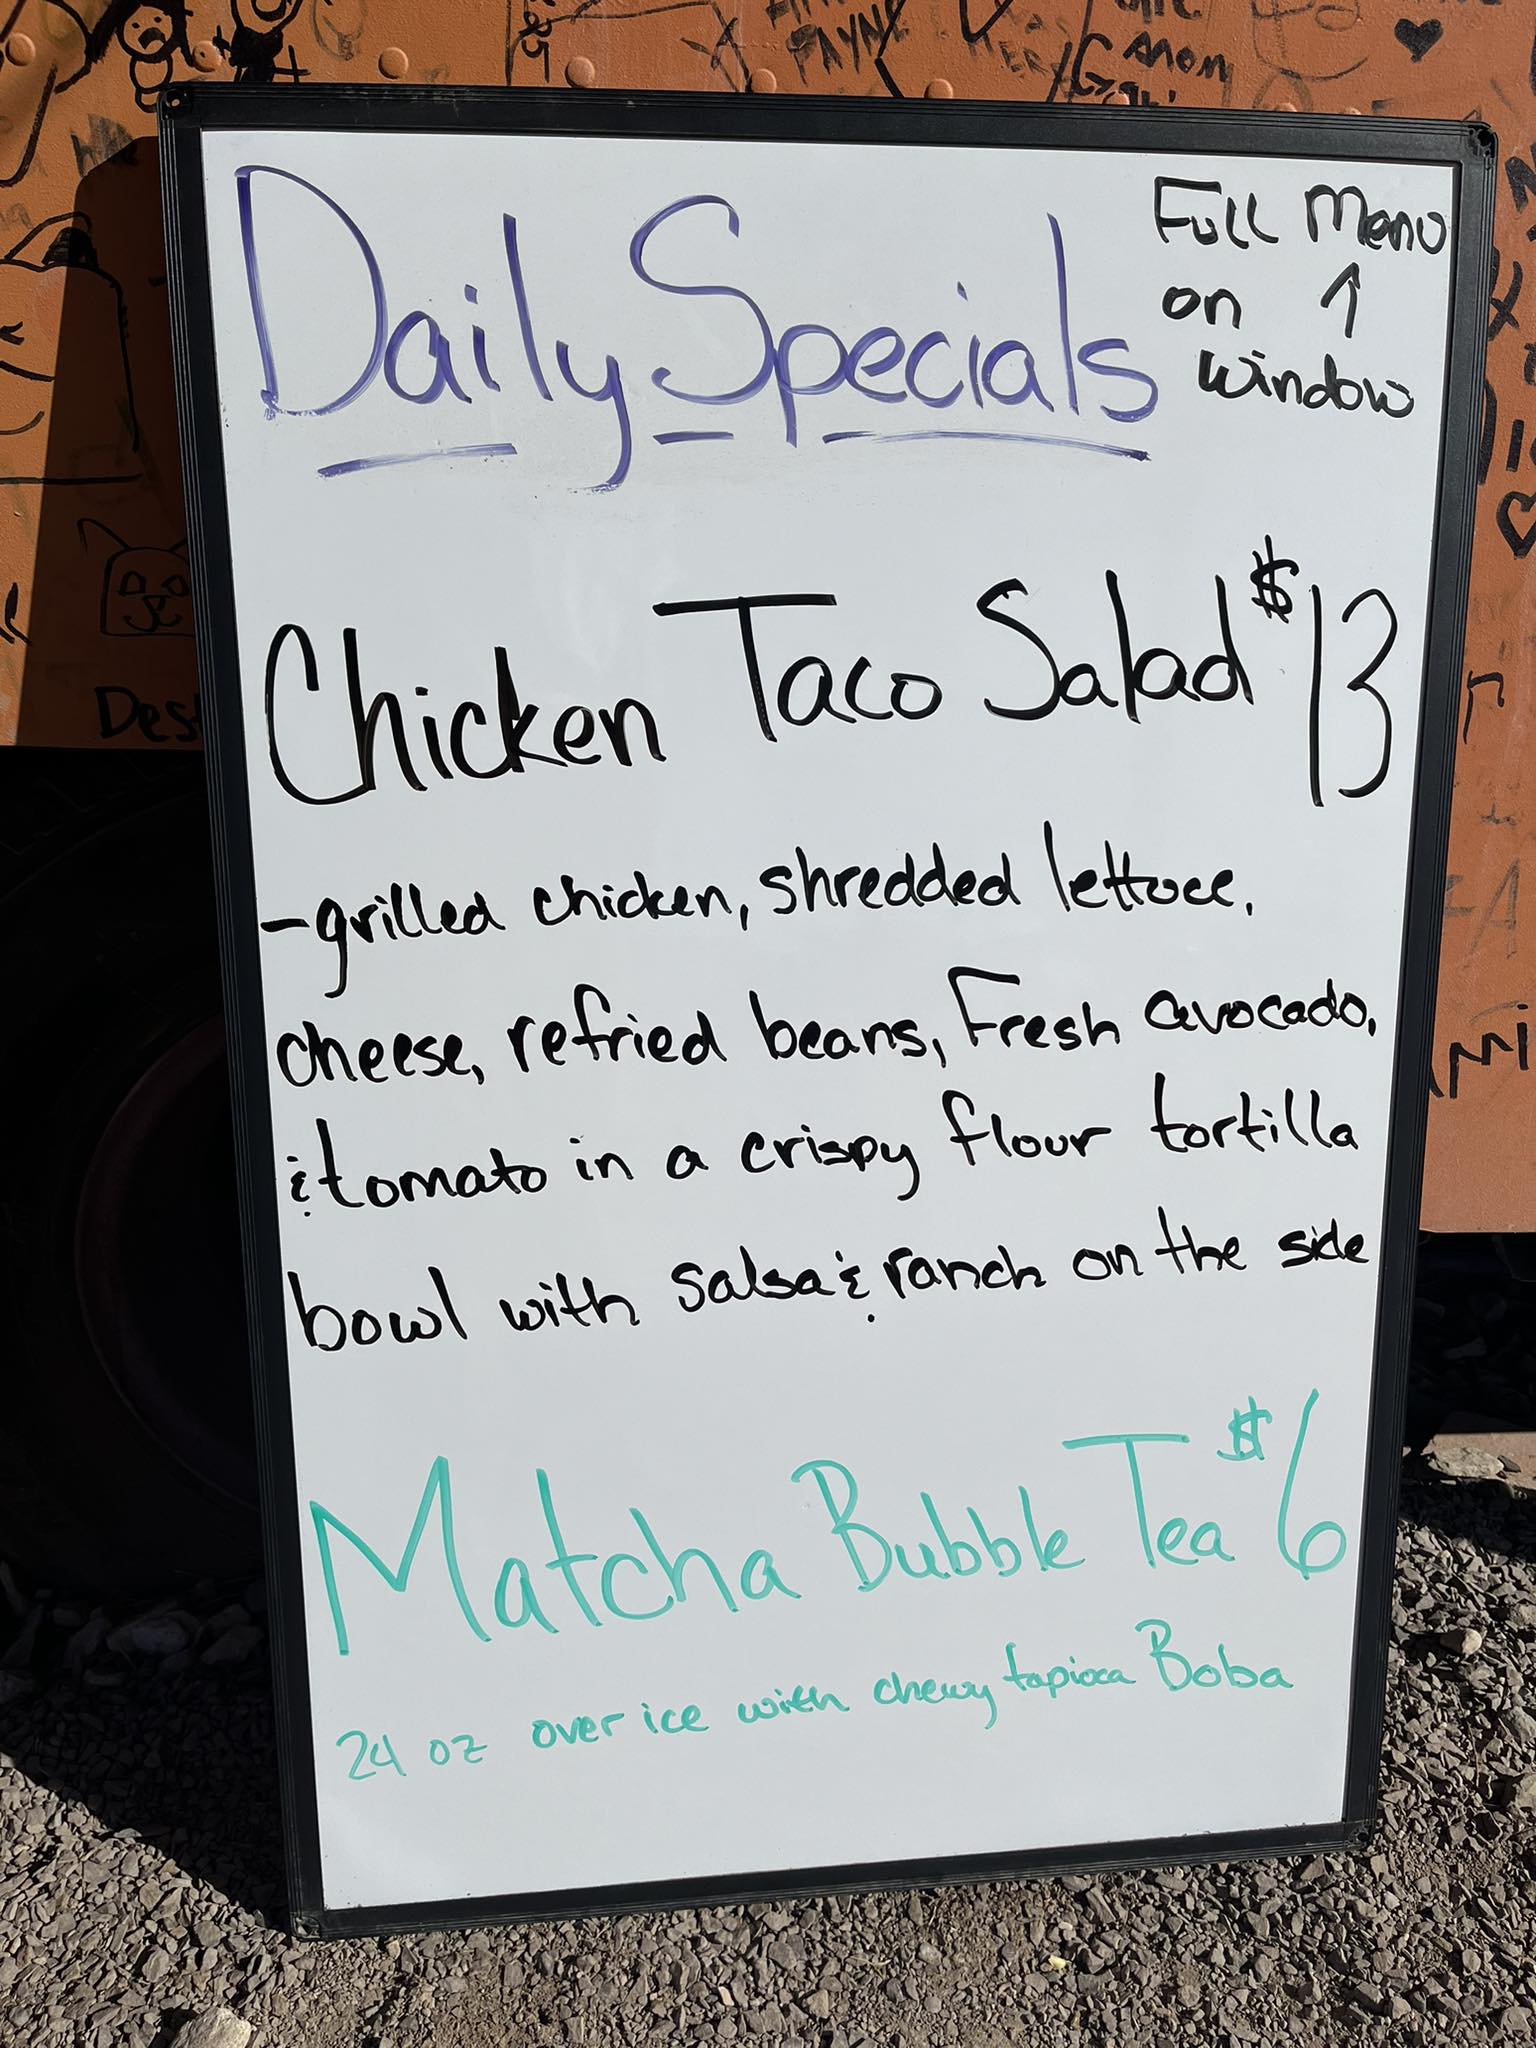 Daily Specials
Full Menu
on ↑
window
Chicken Taco Salad $13
-grilled chicken, shredded lettuce,
cheese, refried beans, Fresh avocado,
& tomato in a crispy flour tortilla
bowl with salsa & ranch on the side
Matcha Bubble Tea $6
24 oz over ice with chewy tapioca Boba
PAYNE